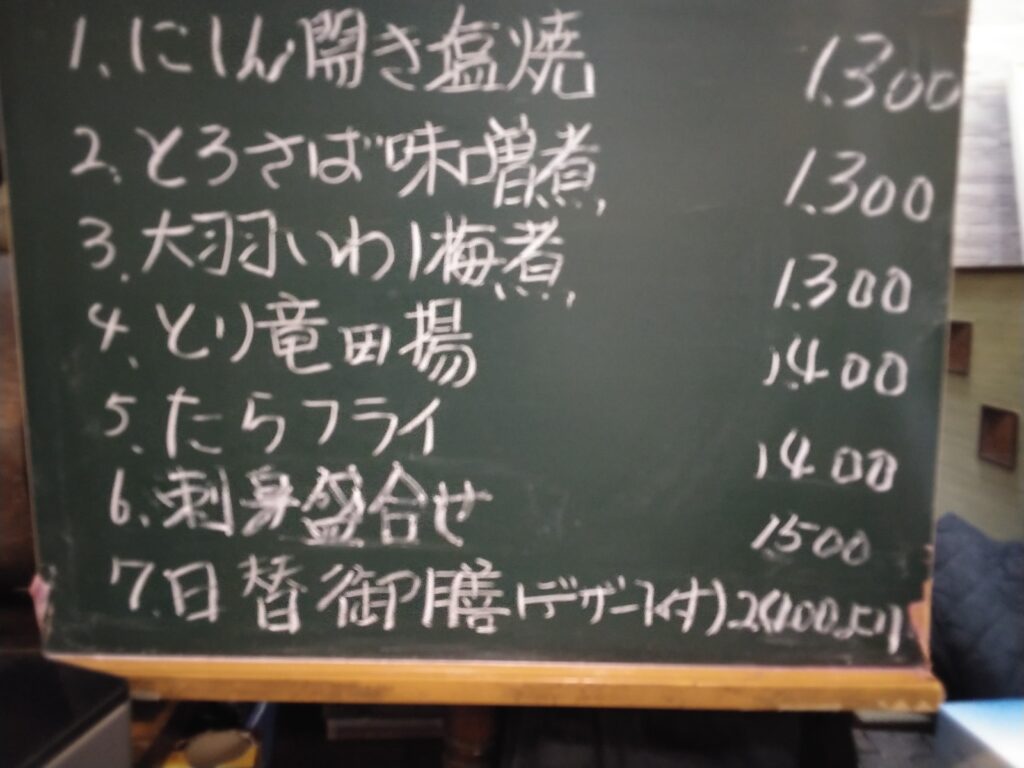 1、にしん開き塩焼 1.300
2、とろさば味噌煮 1.300
3、大羽いわし梅煮 1.300
4、とり竜田揚 1.400
5、たらフライ 1400
6、刺身盛合せ 1500
7、日替御膳(デザート付) 2100より